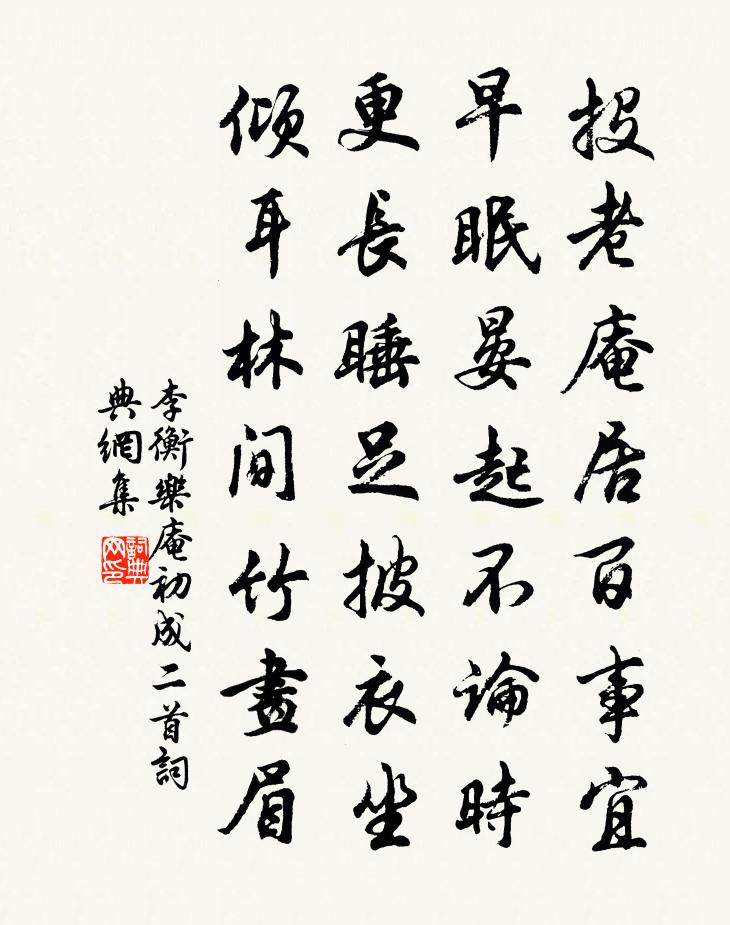 投老庵居百事宜
早眠晏起不論時
更長睡足披衣坐
傾耳林間竹畫眉
李衡樂庵初成二首詞
典網集
詞典
网